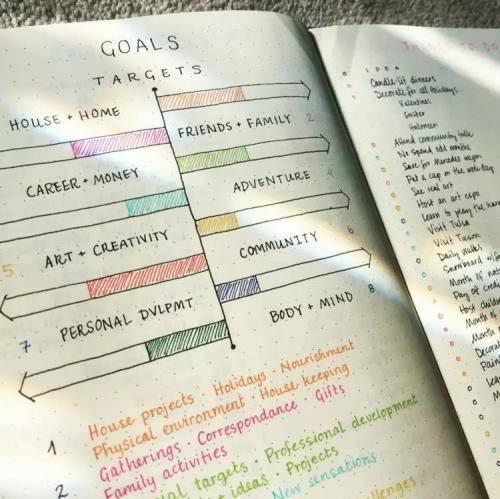 GOALS
TARGETS
HOUSE + HOME
FRIENDS + FAMILY 2
CAREER + MONEY
ADVENTURE 4
5 ART + CREATIVITY
COMMUNITY 6
7 PERSONAL DVLPMT
BODY + MIND 8
1 House projects · Holidays · Nourishment
Physical environment · House keeping
2 Gatherings · Correspondance · Gifts
Family activities
targets · Professional development
ideas · Projects
New sensations
THINGS TO DO
IDEA
Candle-lit dinners
Decorate for all holidays
Valentines
Easter
Halloween
Attend community talk
No spend odd months
Save for Mercedes wagon
Put a cap on the
See real art
Host an art expo
Learn to play the
Visit Tulsa
Visit Tucson
Daily walks
Snowboard
Month of
Pay of credit
Host
Month of
Month